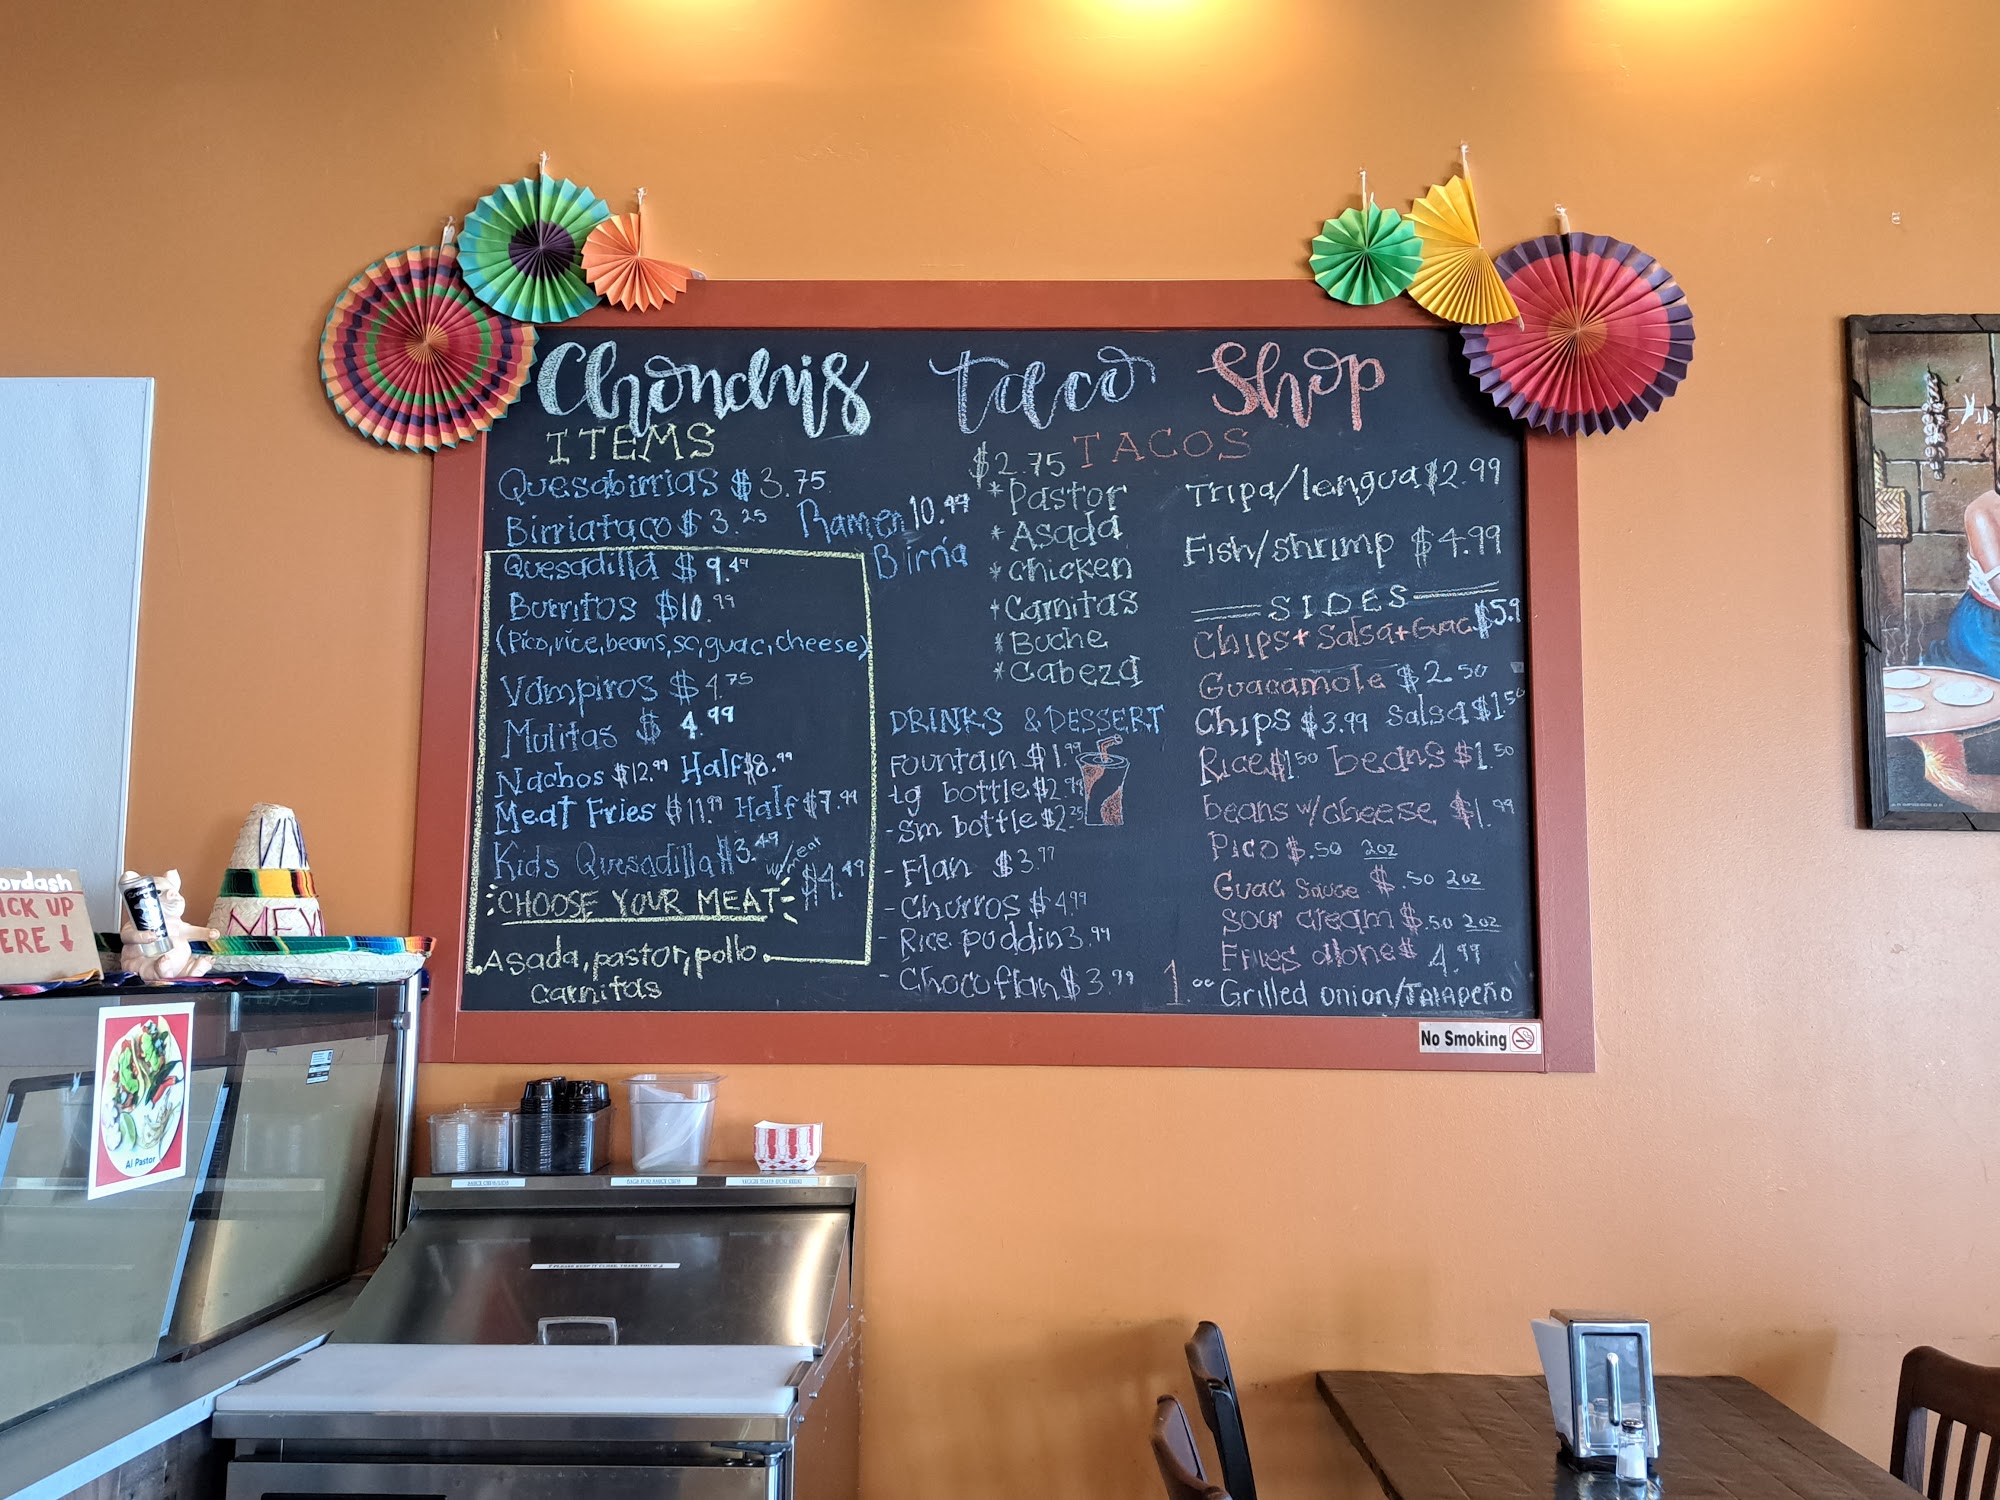 Chonchis taco Shop
ITEMS
Quesabirrias $3.75
Birriataco $3.25
Ramen 10.49
Birria
Quesadilla $9.49
Burritos $10.99
(Pico, rice, beans, sc, guac, cheese)
Vampiros $4.75
Mulitas $4.99
Nachos $12.99 Half $8.99
Meat Fries $11.99 Half $7.99
Kids Quesadilla $3.49
w/meat $4.49
CHOOSE YOUR MEAT
Asada, pastor, pollo
carnitas
$2.75 TACOS
*Pastor
*Asada
*chicken
*Carnitas
*Buche
*Cabeza
Tripa/lengua $2.99
Fish/shrimp $4.99
DRINKS & DESSERT
Fountain $1.99
Lg bottle $2.99
-Sm bottle $2.25
-Flan $3.99
-Churros $4.99
-Rice puddin 3.99
-Chocoflan $3.99
SIDES
Chips+Salsa+Guac $5.9
Guacamole $2.50
Chips $3.99 Salsa $1.50
Rice $1.50 beans $1.50
beans w/cheese $1.99
Pico $.50 2oz
Guac Sauce $.50 2oz
Sour cream $.50 2oz
Fries alone $4.99
1.00 Grilled onion/JALAPEÑO
No Smoking
ordash
ICK UP
ERE ↓
VI
MEX
Al Pastor